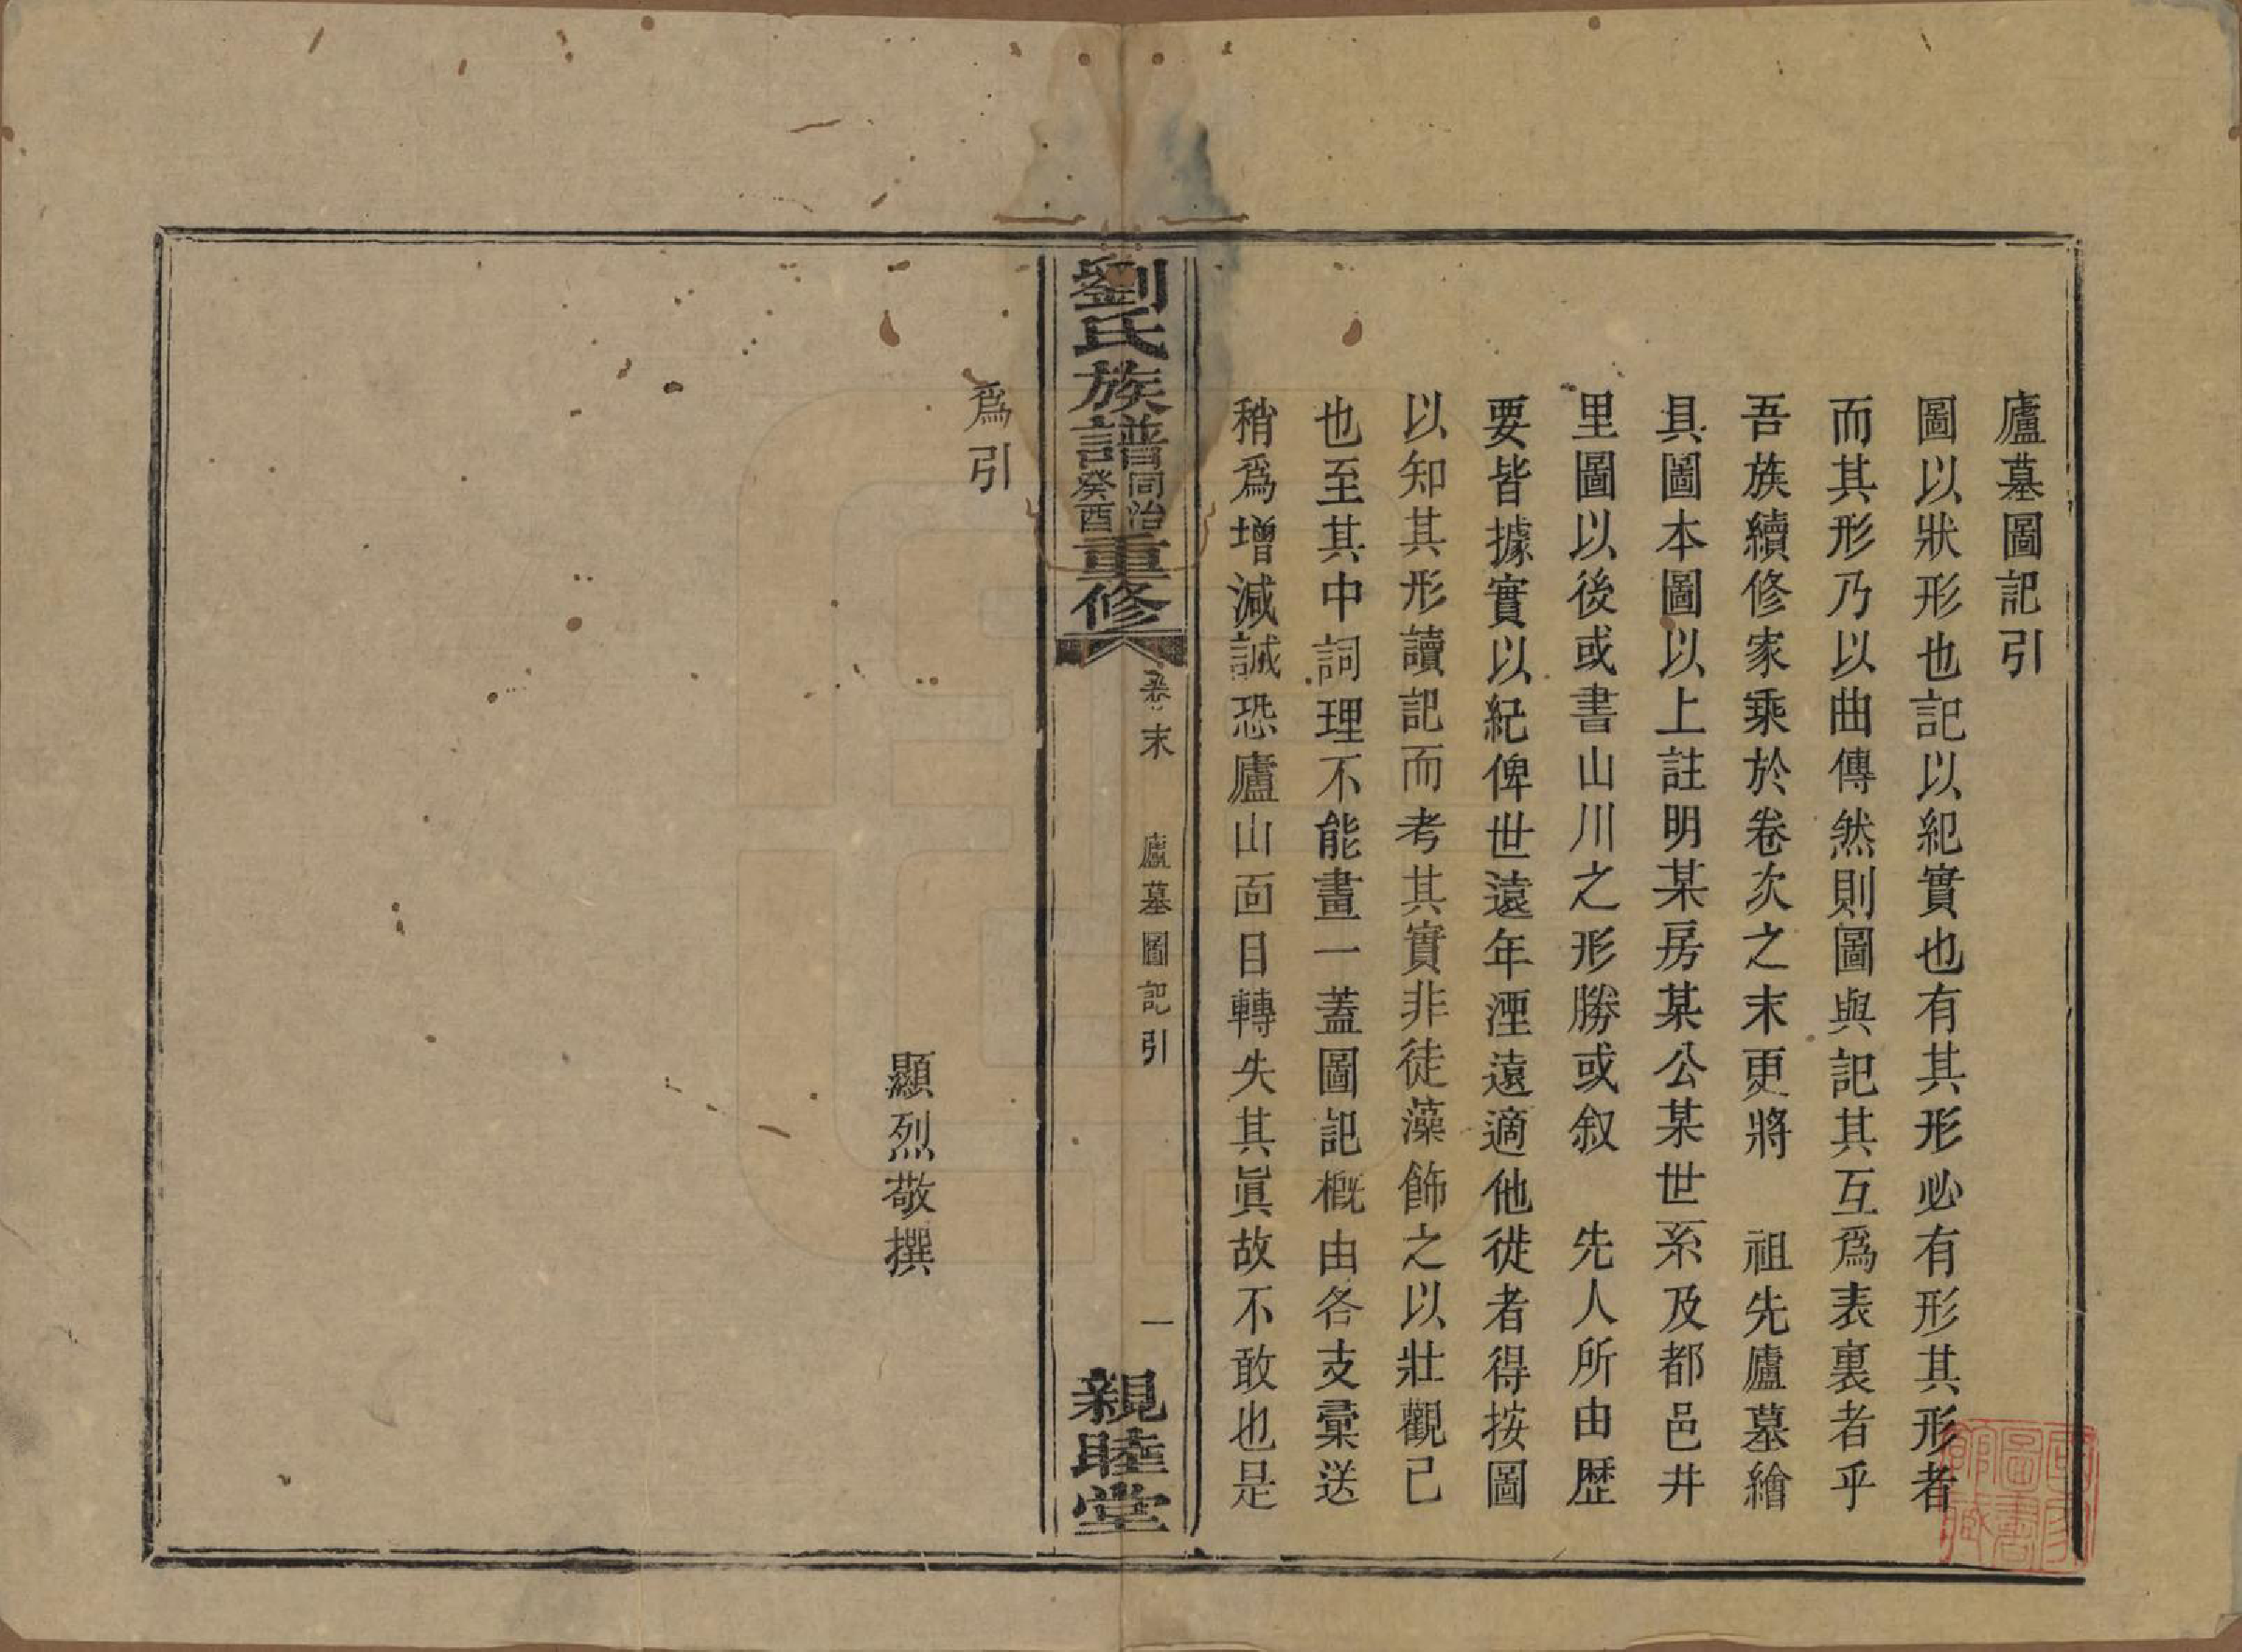 廬墓圖記引
圖以狀形也記以紀實也有其形必有形其形者
而其形乃以曲傳然則圖與記其互爲表裏者乎
吾族續修家乘於卷次之末更將　祖先廬墓繪
具圖本圖以上註明某房某公某世系及都邑井
里圖以後或書山川之形勝或叙　先人所由歷
要皆據實以紀俾世遠年湮遠適他徙者得按圖
以知其形讀記而考其實非徒藻飾之以壯觀已
也至其中詞理不能畫一蓋圖記槪由各支彙送
稍爲增減誠恐廬山面目轉失其眞故不敢也是
劉氏族譜同治癸酉重修
卷末
廬墓圖記引
一
親睦堂
爲引
顯烈敬撰
國家圖書館藏